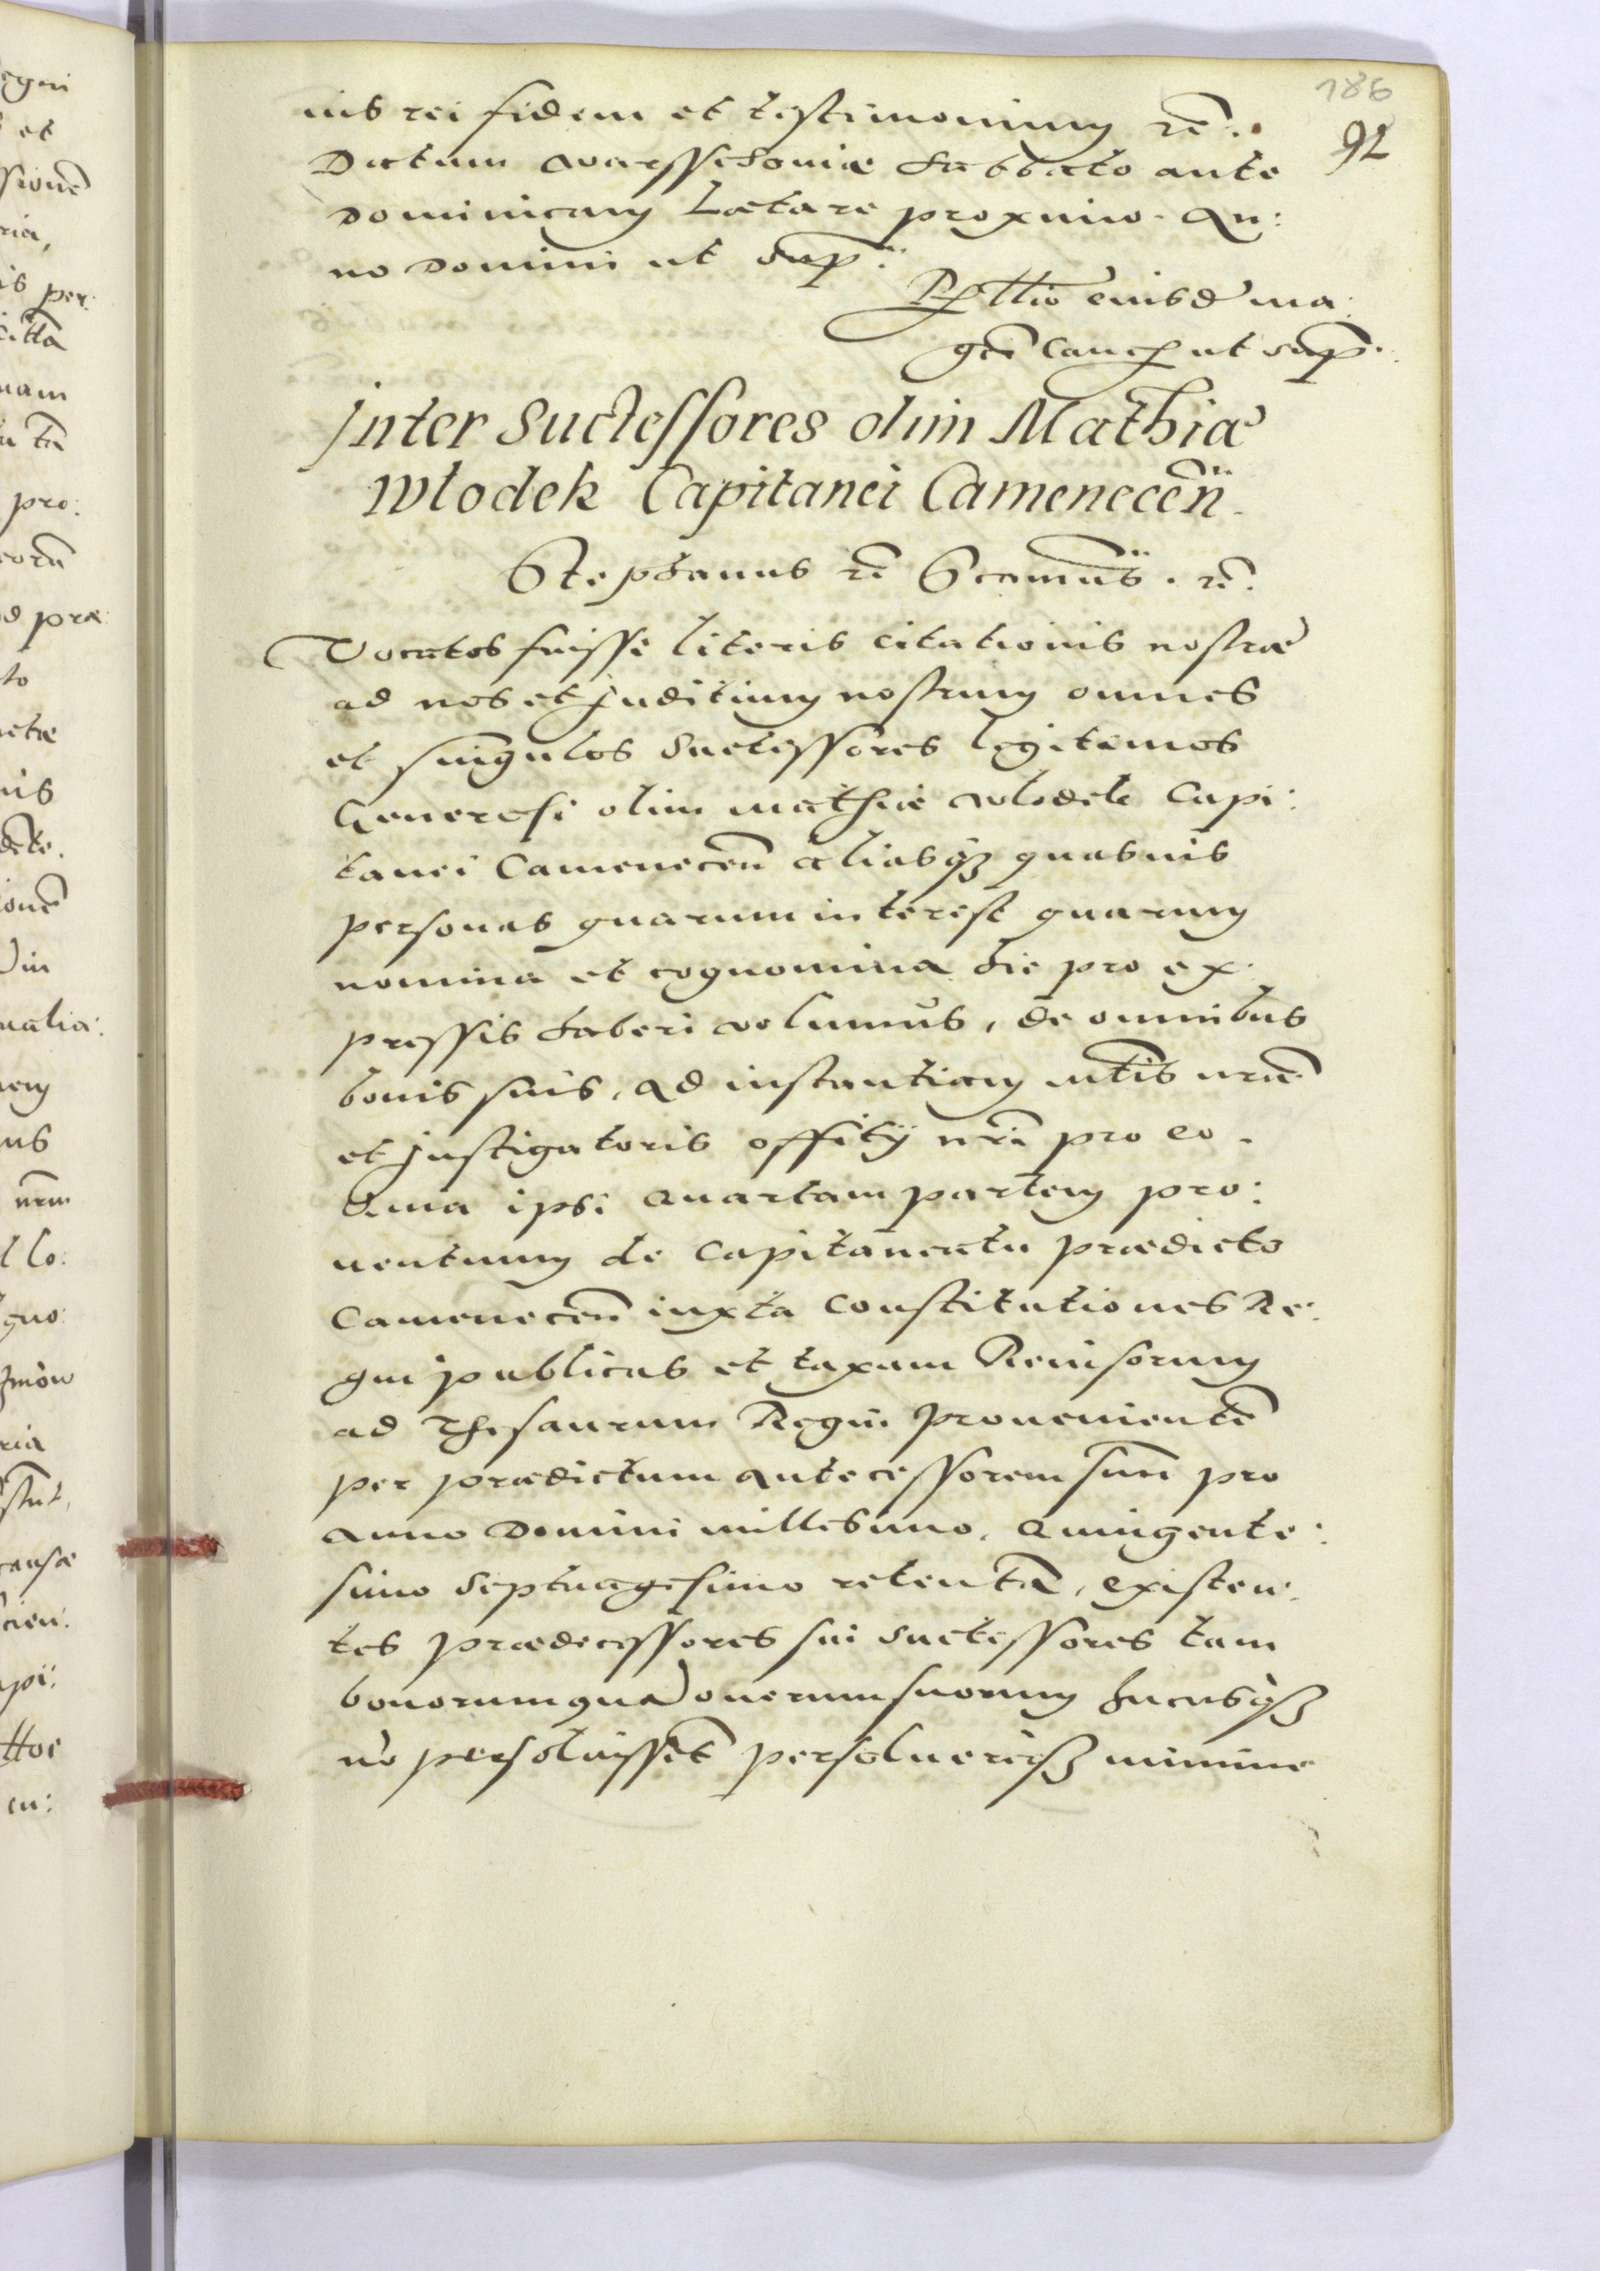 186
92
ius rei fidem et testimonium rē.
Datum Warsschouiæ Sabbato ante
Dominicam Lætare proximo. An:
no Domini ut sup:
Rllio eiusdē ma:
gci Canc ut sup.
Inter Suctessores olim Mathiæ
Wlodek Capitanei Camenecēn.
Stephanus rē Scimus. rē.
Vocatos fuisse literis citationis nostræ
ad nos et Juditium nostrum omnes
et singulos Suctessores legitimos
Generosi olim Mathiæ Wlodek Capi:
tanei Camenecēn aliasqz quasuis
personas quarum interest quarum
nomina et cognomina hic pro ex
pressis haberi volumus, de omnibus
bonis suis, ad instantiam mtis nræ
et Instigatoris offitij nrī pro eo.
Quia ipsi quartam partem pro:
uentuum de Capitaneatu prædicto
Camenecēn iuxta Constitutiones Re:
gni publicas et taxam Reuisorum
ad Thesaurum Regni prouenientē
per prædictum antecessorem suū pro
anno Domini millesimo, Quingente:
simo Septuagesimo retentā, existen:
tes prædecessores sui suctessores tam
bonorum quā onerum suorum hucusqz
nō persoluissēt persoluereqz minime